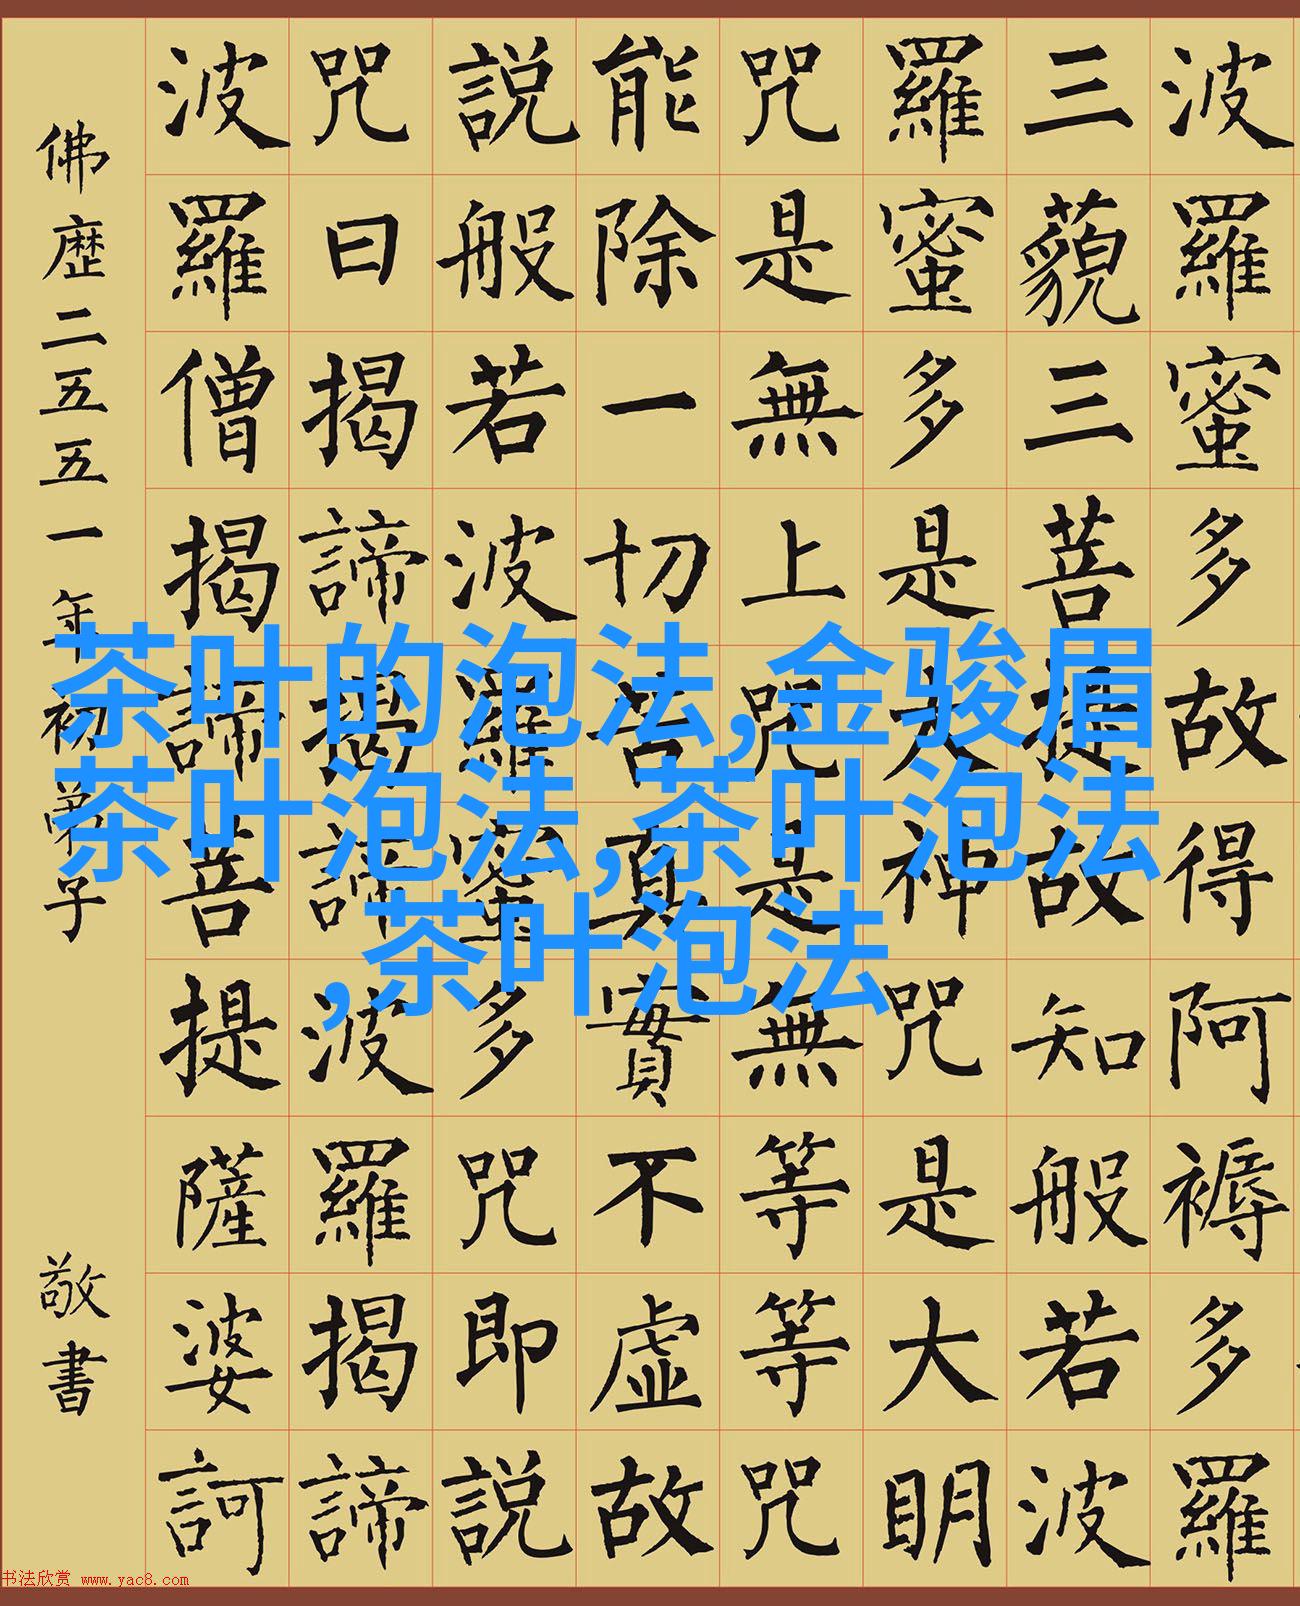 波羅蜜多故得阿褥多羅
三藐三菩提故知般若波
羅蜜多是大神咒是大明
咒是無上咒是無等等咒
能除一切苦真實不虛故
説般若波羅蜜多咒即説
咒曰揭諦揭諦波羅揭諦
波羅僧揭諦菩提薩婆訶
佛歷二五五一年初弟子 敬書
茶叶的泡法,金骏眉
茶叶泡法,茶叶泡法
,茶叶泡法
书法欣赏 www.yac8.com